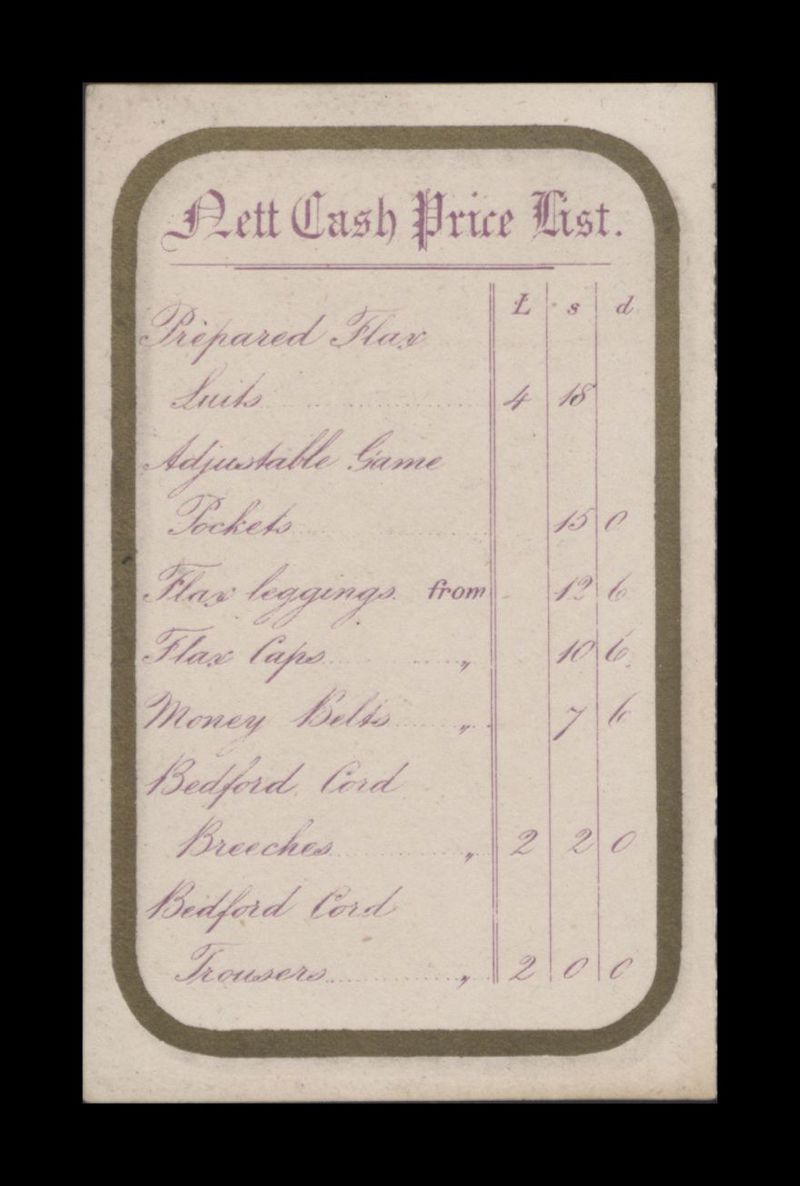 Nett Cash Price List.
£ s d
Prepared Flax
Suits 4 18
Adjustable Game
Pockets 15 0
Flax leggings from 12 6
Flax Caps „ 10 6
Money Belts „ 7 6
Bedford Cord
Breeches „ 2 2 0
Bedford Cord
Trousers „ 2 0 0